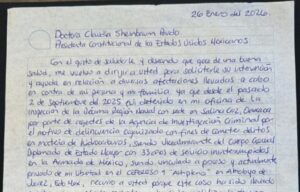 26 Enero del 2026.
Doctora Claudia Sheinbaum Pardo
Presidenta Constitucional de los Estados Unidos Mexicanos.
Con el gusto de saludarle, y deseando que goce de una buena
salud, me vuelvo a dirigir a usted para solicitarle su intervención
y ayuda en relación a diversas afectaciones llevadas a cabo
en contra de mi persona y mi familia, ya que desde el pasado
2 de septiembre del 2025 fui detenido en mi oficina de la
inspección de la Decima Región Naval con sede en Salina Cruz, Oaxaca
por parte de agentes de la Agencia de Investigación Criminal por
el motivo de delincuencia organizada con fines de cometer delitos
en materia de hidrocarburos, siendo Vicealmirante del Cuerpo General
Diplomado de Estado Mayor con 33 años de servicio ininterrumpidos
en la Armada de México, siendo vinculado a proceso y actualmente
privado de mi libertad en el CEFERESO 1 "Altiplano" en Almoloya de
Juárez, Edo. Mex., recurro a usted porque este caso ha sido llevado